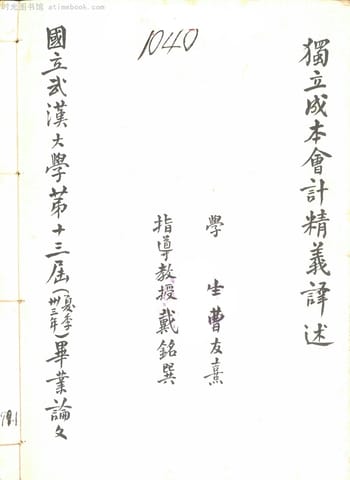 时光图书馆 · atimebook.com
1040
獨立成本會計精義譯述
學生曹友熹
指導教授戴銘巽
國立武漢大學第十三屆(夏季卅三年)畢業論文